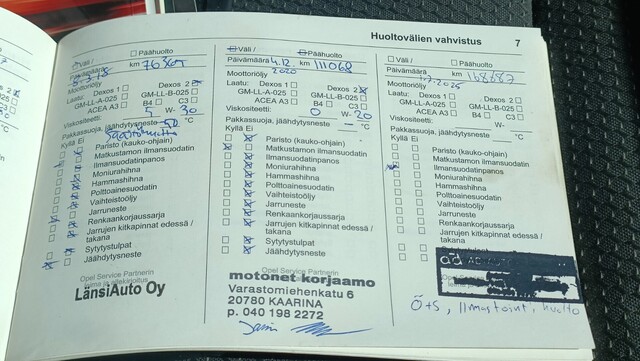 Huoltovälien vahvistus 7
Väli / Päähuolto
Päivämäärä km 76369
Moottoriöljy
Laatu: Dexos 1 Dexos 2
GM-LL-A-025 GM-LL-B-025
ACEA A3 B4 C3
Viskositeetti: 5 W- 30
Pakkassuoja, jäähdytysneste -50 °C
Kyllä Ei
Paristo (kauko-ohjain)
Matkustamon ilmansuodatin
Ilmansuodatinpanos
Moniurahihna
Hammashihna
Polttoainesuodatin
Vaihteistoöljy
Jarruneste
Renkaankorjaussarja
Jarrujen kitkapinnat edessä /
takana
Sytytystulpat
Jäähdytysneste
Opel Service Partnerin
LänsiAuto Oy
Väli / Päähuolto
Päivämäärä 4.12. 2020 km 111068
Moottoriöljy
Laatu: Dexos 1 Dexos 2
GM-LL-A-025 GM-LL-B-025
ACEA A3 B4 C3
Viskositeetti: 0 W- 20
Pakkassuoja, jäähdytysneste — °C
Kyllä Ei
Paristo (kauko-ohjain)
Matkustamon ilmansuodatin
Ilmansuodatinpanos
Moniurahihna
Hammashihna
Polttoainesuodatin
Vaihteistoöljy
Jarruneste
Renkaankorjaussarja
Jarrujen kitkapinnat edessä /
takana
Sytytystulpat
Jäähdytysneste
Opel Service Partnerin
motonet korjaamo
Varastomiehenkatu 6
20780 KAARINA
p. 040 198 2272
Väli / Päähuolto
Päivämäärä km 168687
Moottoriöljy
Laatu: Dexos 1 Dexos 2
GM-LL-A-025 GM-LL-B-025
ACEA A3 B4 C3
Viskositeetti: W-
Pakkassuoja, jäähdytysneste °C
Kyllä Ei
Paristo (kauko-ohjain)
Matkustamon ilmansuodatin
Ilmansuodatinpanos
Moniurahihna
Hammashihna
Polttoainesuodatin
Vaihteistoöljy
Jarruneste
Renkaankorjaussarja
Jarrujen kitkapinnat edessä /
takana
ad
Ö+S, Ilmastoint, huolto